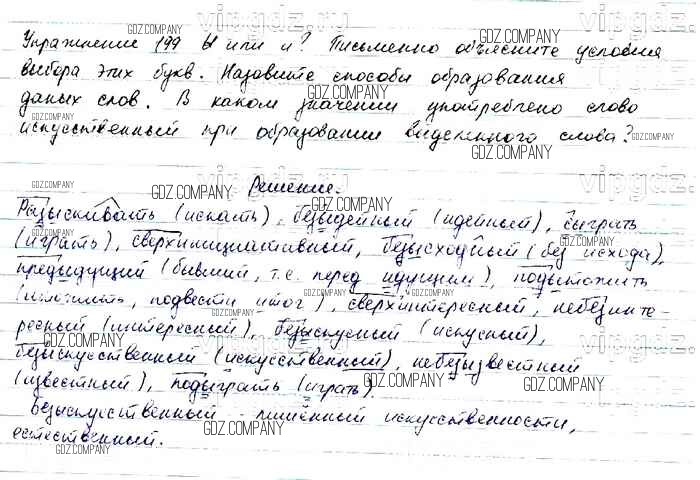 Упражнение 199 Ы или и? Письменно объясните условия
выбора этих букв. Назовите способы образования
даных слов. В каком значении употреблено слово
искусственный при образовании выделенного слова?
Решение.
Разыскивать (искать), безыдейный (идейный), сыграть
(играть), сверхинициативный, безысходный (без исхода),
предыдущий (бывший, т.е. перед идущим), подытожить
(итожить, подвести итог), сверхинтересный, небезинте-
ресный (интересный), безыскусный (искусный),
безыскусственный (искусственный), небезызвестный
(известный), подыграть (играть).
Безыскусственный - лишённый искусственности,
естественный.
GDZ.COMPANY
vipgdz.ru